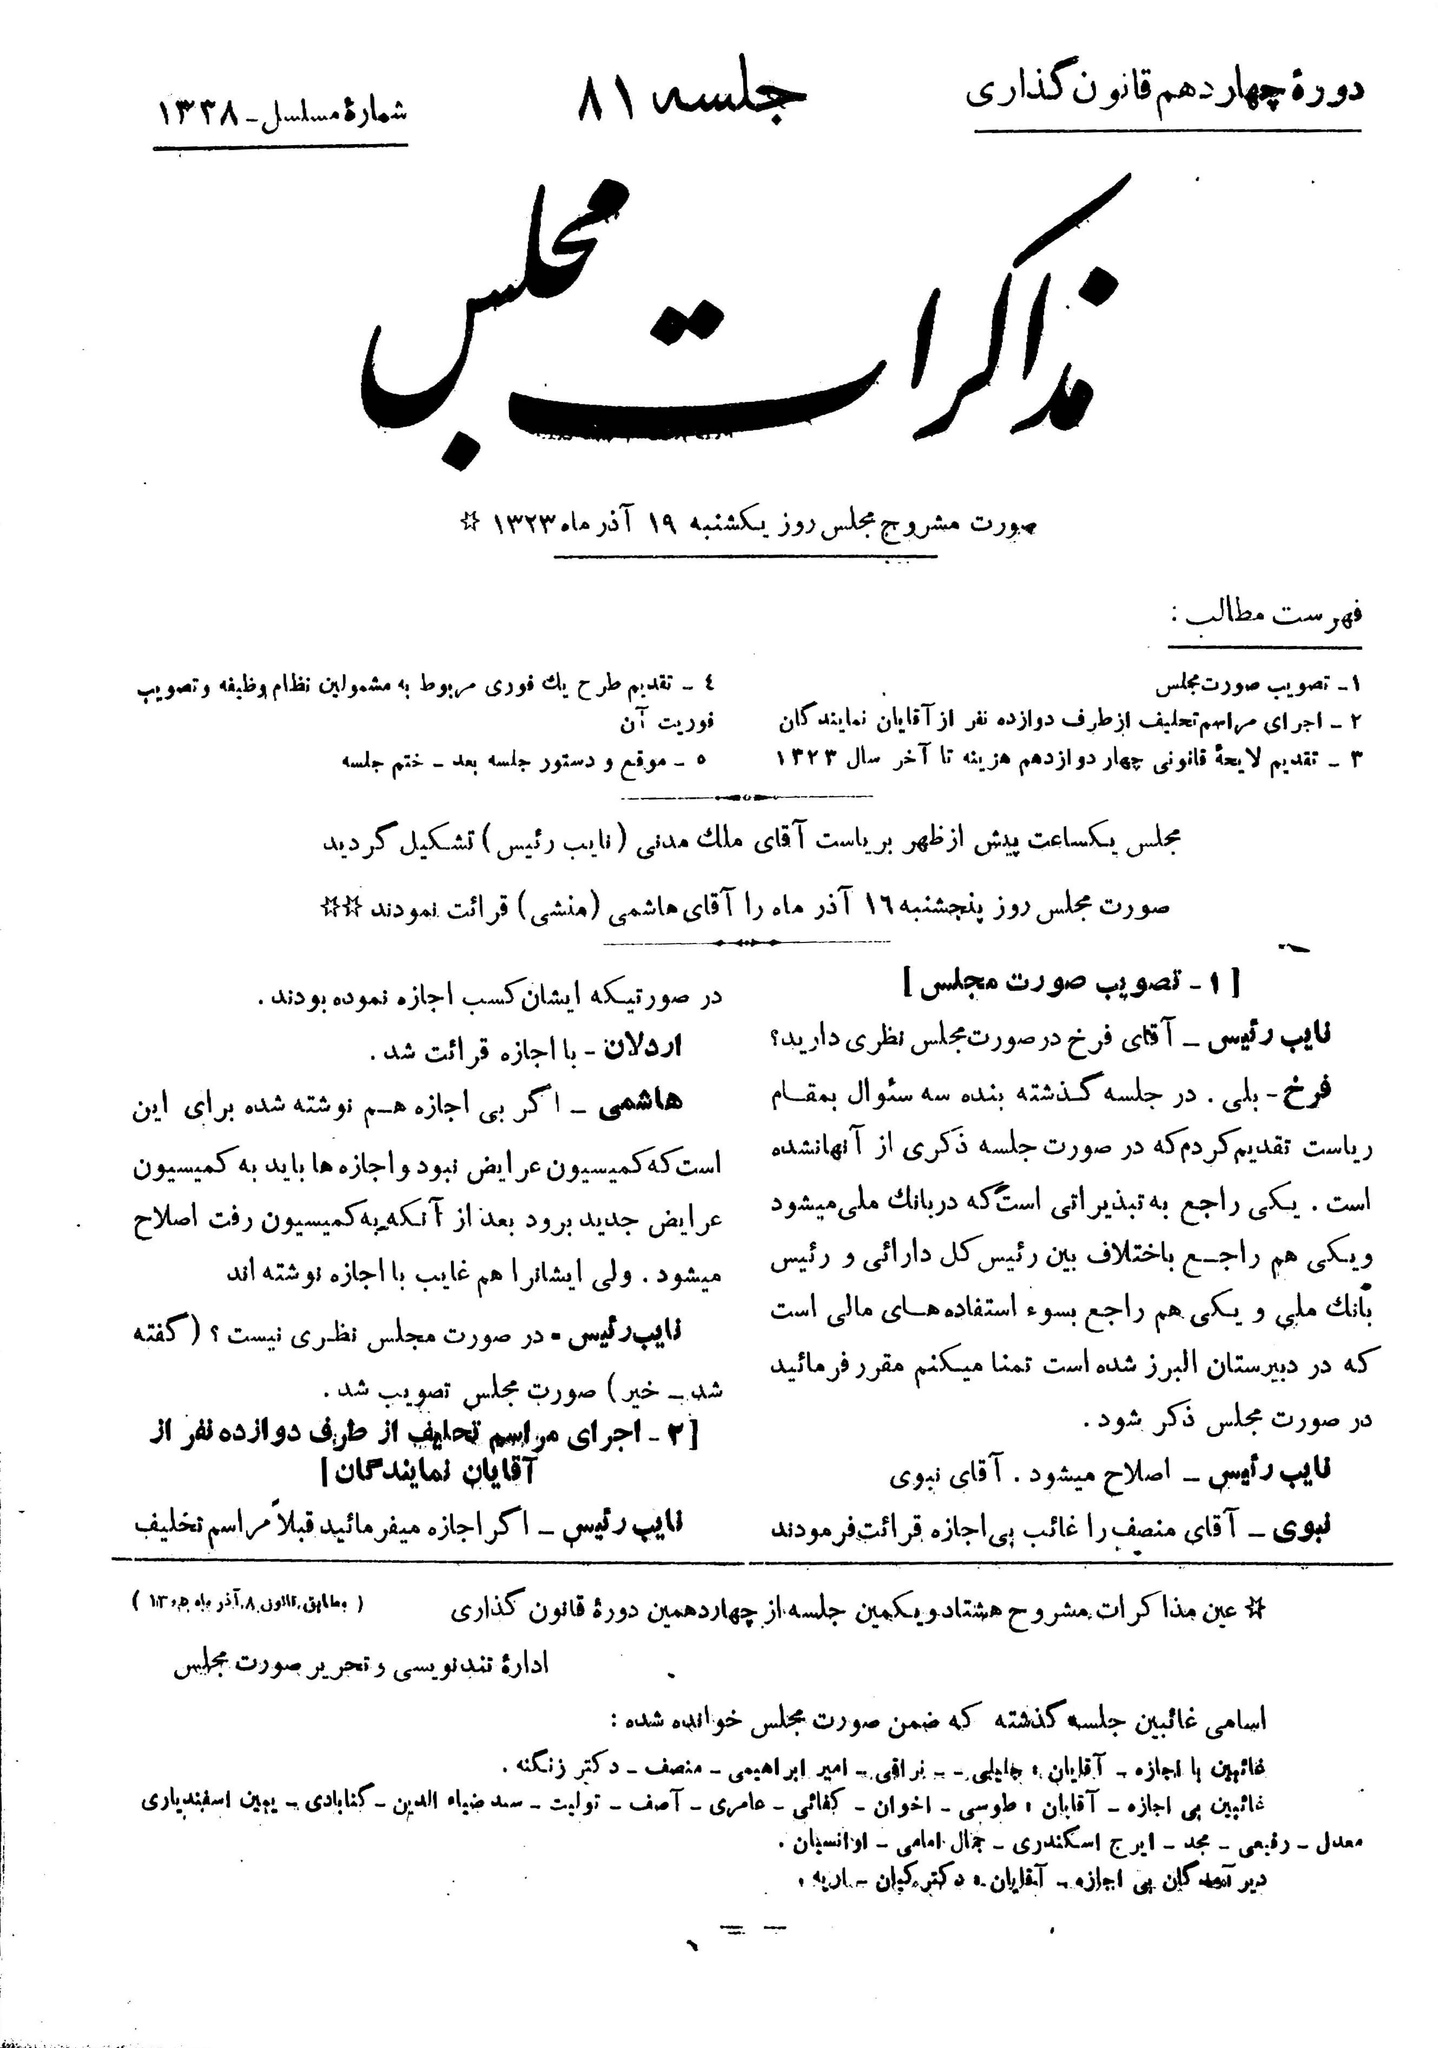 دورهٔ چهاردهم قانون گذاری
جلسه ۸۱
شمارهٔ مسلسل - ۱۳۳۸
مذاکرات مجلس
صورت مشروح مجلس روز یکشنبه ۱۹ آذر ماه ۱۳۲۳ ☆
فهرست مطالب :
۱- تصویب صورت مجلس
۲ - اجرای مراسم تحلیف از طرف دوازده نفر از آقایان نمایندگان
۳ - تقدیم لایحهٔ قانونی چهار دوازدهم هزینه تا آخر سال ۱۳۲۳
٤ - تقدیم طرح یك فوری مربوط به مشمولین نظام وظیفه و تصویب
فوریت آن
٥ - موقع و دستور جلسه بعد - ختم جلسه
مجلس یکساعت پیش از ظهر بریاست آقای ملك مدنی (نایب رئیس) تشکیل گردید
صورت مجلس روز پنجشنبه ۱٦ آذر ماه را آقای هاشمی (منشی) قرائت نمودند ☆☆
[۱ - تصویب صورت مجلس]
نایب رئیس - آقای فرخ در صورت مجلس نظری دارید؟
فرخ - بلی . در جلسه گذشته بنده سه سئوال بمقام
ریاست تقدیم کردم که در صورت جلسه ذکری از آنهانشده
است . یکی راجع به تبذیراتی است که در بانك ملی میشود
و یکی هم راجع باختلاف بین رئیس کل دارائی و رئیس
بانك ملی و یکی هم راجع بسوء استفاده های مالی است
که در دبیرستان البرز شده است تمنا میکنم مقرر فرمائید
در صورت مجلس ذکر شود .
نایب رئیس - اصلاح میشود . آقای نبوی
نبوی - آقای منصف را غائب بی اجازه قرائت فرمودند
در صورتیکه ایشان کسب اجازه نموده بودند .
اردلان - با اجازه قرائت شد .
هاشمی - اگر بی اجازه هم نوشته شده برای این
است که کمیسیون عرایض نبود و اجازه ها باید به کمیسیون
عرایض جدید برود بعد از آنکه به کمیسیون رفت اصلاح
میشود . ولی ایشانرا هم غایب با اجازه نوشته اند
نایب رئیس - در صورت مجلس نظری نیست ؟ (گفته
شد - خیر) صورت مجلس تصویب شد .
[۲ - اجرای مراسم تحلیف از طرف دوازده نفر از
آقایان نمایندگان]
نایب رئیس - اگر اجازه میفرمائید قبلاً مراسم تخلیف
☆ عین مذاکرات مشروح هشتاد و یکمین جلسه از چهاردهمین دورهٔ قانون گذاری
( مطابق قانون ۸ آذر ماه ۱۳۰۵ )
ادارهٔ تندنویسی و تحریر صورت مجلس
اسامی غائبین جلسه گذشته که ضمن صورت مجلس خوانده شده :
غائبین با اجازه - آقایان : جلیلی - نراقی - امیر ابراهیمی - منصف - دکتر زنگنه .
غائبین بی اجازه - آقایان : طوسی - اخوان - کفائی - عامری - آصف - تولیت - سید ضیاء الدین - گنابادی - یمین اسفندیاری
معدل - رفیعی - مجد - ایرج اسکندری - جمال امامی - اوانسیان .
دیر آمدگان بی اجازه - آقایان : دکتر کیان - اریه .
۱